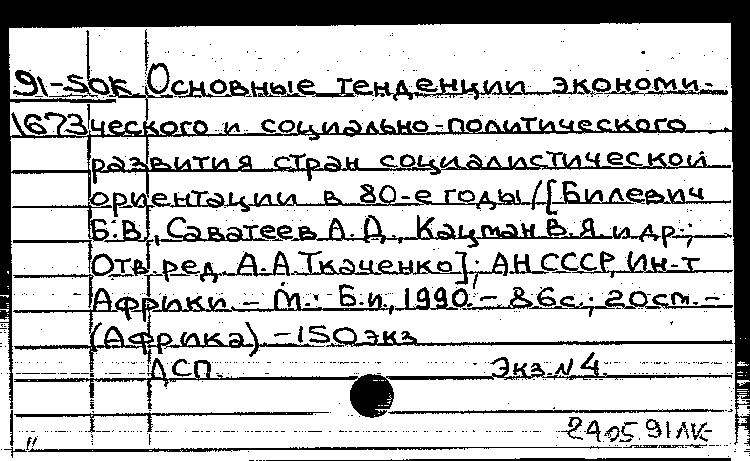 91-50К Основные тенденции экономи-
1673 ческого и социально-политического
развития стран социалистической
ориентации в 80-е годы/[Билевич
Б.В., Саватеев А.Д., Кацман В.Я. и др.;
Отв. ред. А.А.Ткаченко]; АН СССР, Ин-т
Африки. - М.: Б.и., 1990. - 86с.; 20см. -
(Африка). - 150 экз
ДСП. Экз. N 4.
24 05 91